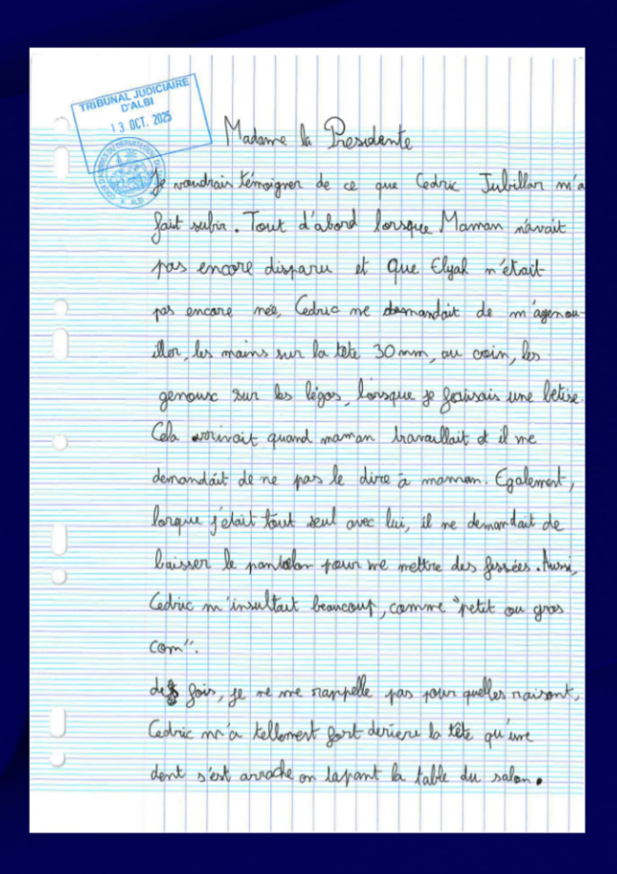 TRIBUNAL JUDICIAIRE
D'ALBI
13 OCT. 2025
Madame la Presidente
Je voudrais témoigner de ce que Cedric Jubillar m'a
fait subir. Tout d'abord lorsque Maman n'avait
pas encore disparu et que Elyah n'était
pas encore née, Cedric me demandait de m'agenou-
iller, les mains sur la tête 30 mm, au coin, les
genoux sur les légos, lorsque je faisais une bêtise.
Cela arrivait quand maman travaillait et il me
demandait de ne pas le dire à maman. Egalement,
lorque j'étais tout seul avec lui, il me demandait de
baisser le pantalon pour me mettre des fessées. Aussi,
Cedric m'insultait beaucoup, comme "petit ou gros
com".
des fois, je ne me rappelle pas pour quelles raisont,
Cedric m'a tellement fort deriere la tête qu'une
dent s'est arraché en tapant la table du salon.